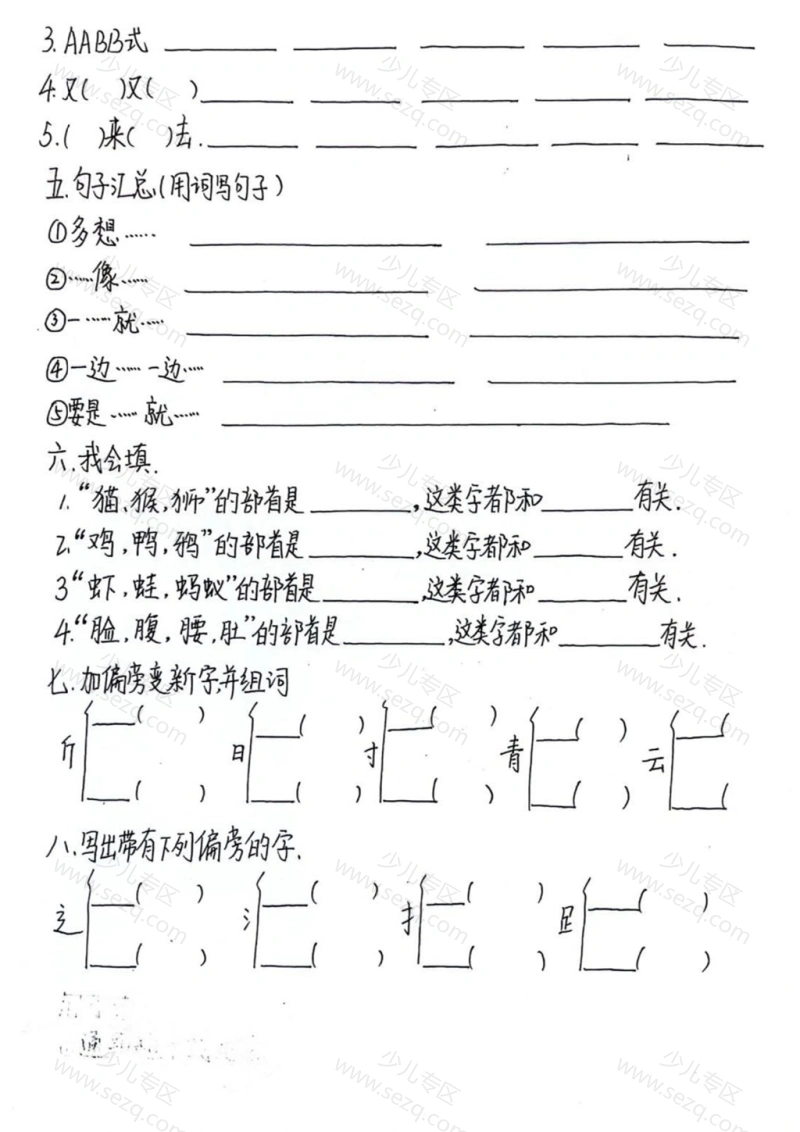 3. AABB式 ______ ______ ______ ______ ______
4.又(　)又(　)______ ______ ______ ______ ______
5.(　)来(　)去.______ ______ ______ ______ ______
五.句子汇总(用词写句子)
①多想…… ____________ ____________
②……像…… ____________ ____________
③一……就…… ____________ ____________
④一边……一边…… ____________ ____________
⑤要是……就…… ____________
六.我会填.
1.“猫、猴,狮”的部首是______,这类字都和______有关.
2.“鸡,鸭,鸦”的部首是______,这类字都和______有关.
3“虾,蛙,蚂蚁”的部首是______,这类字都和______有关.
4.“脸,腹,腰,肚”的部首是______,这类字都和______有关.
七.加偏旁变新字,并组词
斤 ____(　) 日 ____(　) 寸 ____(　) 青 ____(　) 云 ____(
____(　) ____(　) ____(　) ____(　) ____(
八.写出带有下列偏旁的字.
辶 ____(　) 氵 ____(　) 扌 ____(　) 𧾷 ____(　)
____(　) ____(　) ____(　) ____(　)
通
少儿专区
www.sezq.com